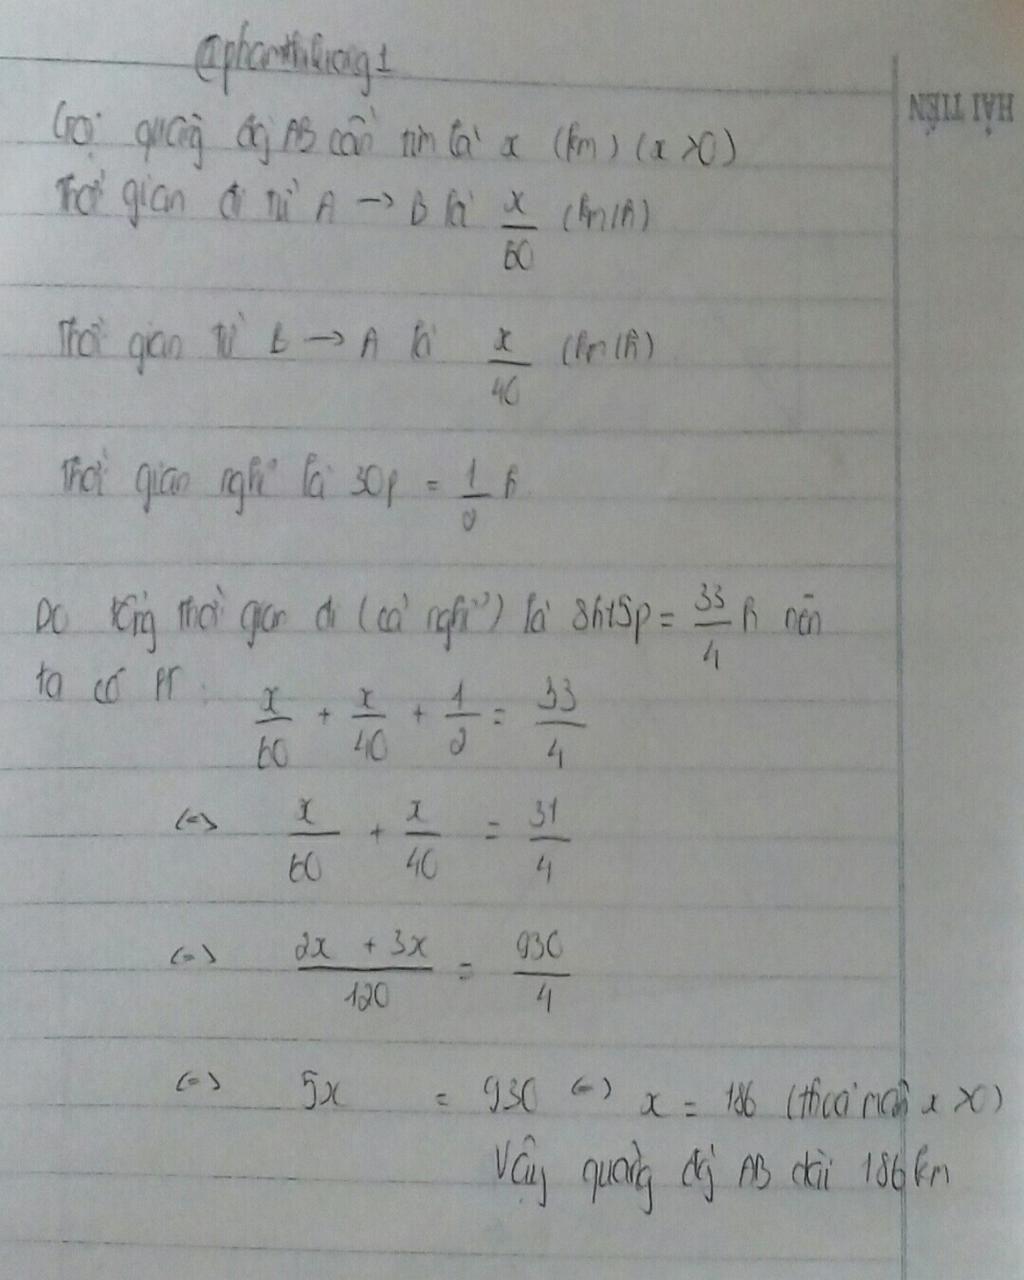 @phamthiluong1
HẢI TIẾN
Gọi quãng đg AB cần tìm là x (km) (x >0)
Thời gian đi từ A → B là x/60 (km/h)
Thời gian từ B → A là x/40 (km/h)
Thời gian nghỉ là 30p = 1/2 h
Do tổng thời gian đi (cả nghỉ) là 8h15p = 33/4 h nên
ta có PT:
x/60 + x/40 + 1/2 = 33/4
(=) x/60 + x/40 = 31/4
(=) (2x + 3x)/120 = 930/4
(=) 5x = 930 (=) x = 186 (thoả mãn x >0)
Vậy quãng đg AB dài 186 km